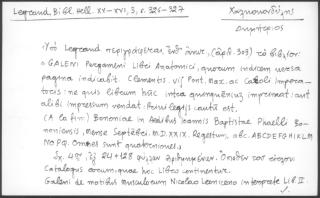 Legrand, Bibl. Hell. XV-XVI, 3, σ. 326-327
Χαλκοκονδύλης
Δημήτριος
Ὑπὸ Legrand περιγράφεται ἐνθ' ἀνωτ. (ἀριθ. 303) τὸ βιβλίον:
«GALENI Pergameni Libri Anatomici, quorum indicem versa
pagina indicabit. Clementis. vij Pont. Max. ac Caroli Impera-
toris: ne quis librum hūc intra quinquēniuȝ imprimat: aut
alibi impressum vendat: Privilegijs cautū est.
(A la fin:) Bononiae in Aedibus Ioannis Baptistae Phaelli Bo-
noniensis, Mense Septēbri. M.D.XXIX. Regestum, abc. ABCDEFGHIKLM
NOPQ. Omnes sunt quaterniones».
Σχ. 4ον, ἐξ 24+128 φύλλων ἠριθμημένων. Ὄπισθεν τοῦ τίτλου
Catalogus eorum, quae hoc Libro continentur.
Galeni de motibus musculorum Nicolao Leoniceno interprete Lib. II.